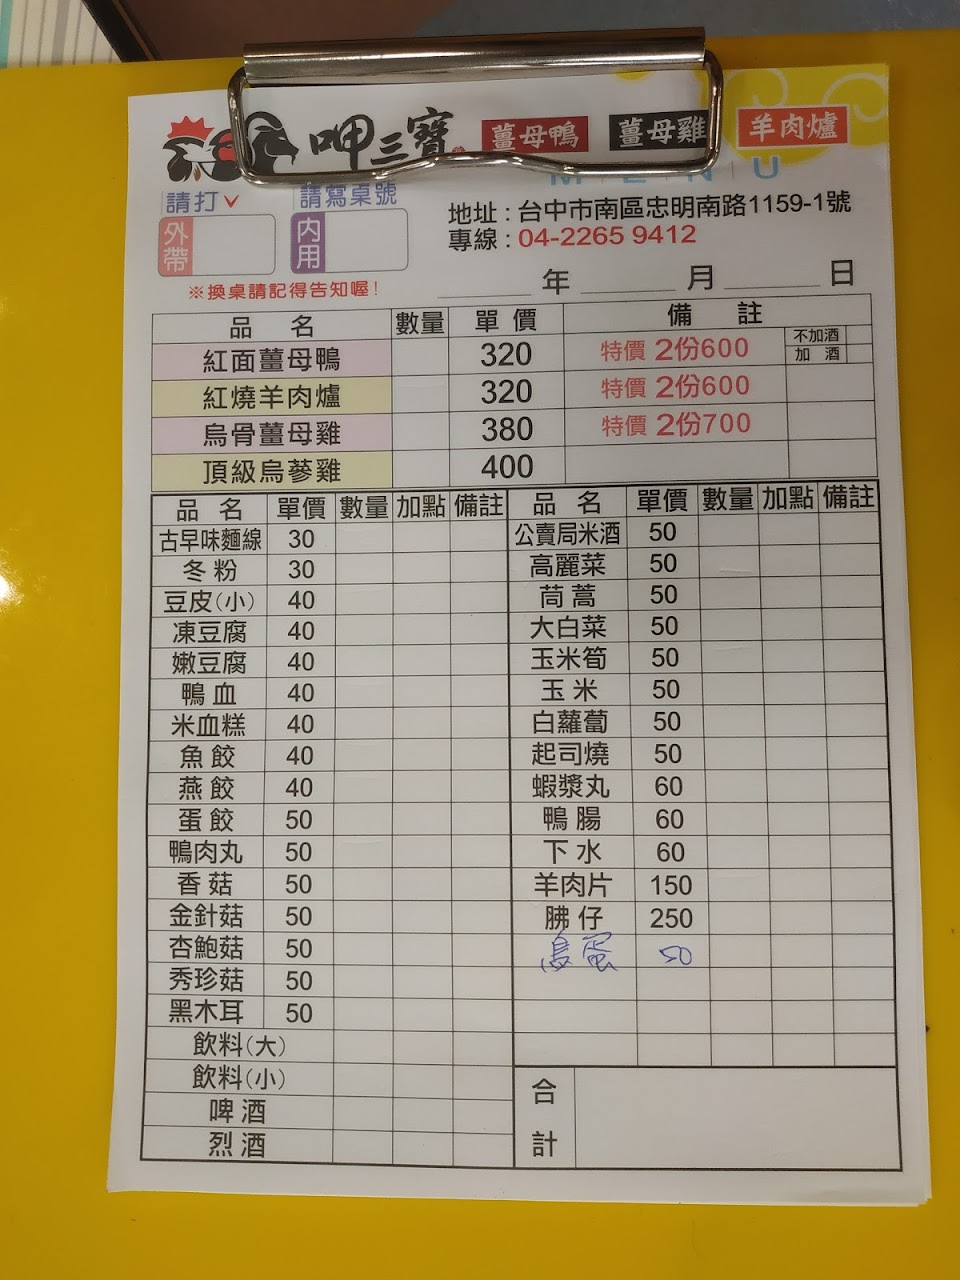 呷三寶 薑母鴨 薑母雞 羊肉爐
MENU
請打✓ 請寫桌號
外帶 內用
地址：台中市南區忠明南路1159-1號
專線：04-2265 9412
※換桌請記得告知喔！
年 月 日
品名 數量 單價 備註
紅面薑母鴨 320 特價 2份600 不加酒 加酒
紅燒羊肉爐 320 特價 2份600
烏骨薑母雞 380 特價 2份700
頂級烏蔘雞 400
品名 單價 數量 加點 備註 品名 單價 數量 加點 備註
古早味麵線 30 公賣局米酒 50
冬粉 30 高麗菜 50
豆皮(小) 40 茼蒿 50
凍豆腐 40 大白菜 50
嫩豆腐 40 玉米筍 50
鴨血 40 玉米 50
米血糕 40 白蘿蔔 50
魚餃 40 起司燒 50
燕餃 40 蝦漿丸 60
蛋餃 50 鴨腸 60
鴨肉丸 50 下水 60
香菇 50 羊肉片 150
金針菇 50 胇仔 250
杏鮑菇 50 鳥蛋 50
秀珍菇 50
黑木耳 50
飲料(大)
飲料(小)
啤酒
烈酒
合計